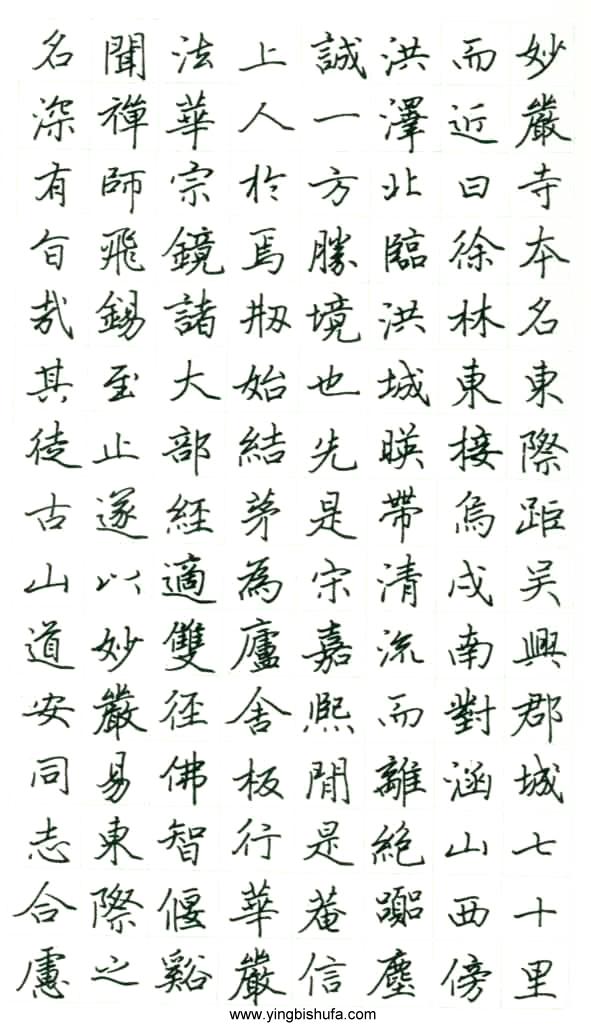 妙嚴寺本名東際距吴興郡城七十里
而近曰徐林東接烏戍南對涵山西傍
洪澤北臨洪城暎帶清流而離絶躁塵
誠一方勝境也先是宋嘉熈間是菴信
上人於焉剏始結茅為廬舍板行華嚴
法華宗鏡諸大部經適雙徑佛智偃谿
聞禪師飛錫至止遂以妙嚴易東際之
名深有㫖哉其徒古山道安同志合慮
www.yingbishufa.com